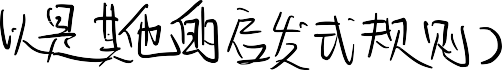 以是其他的启发式规则）